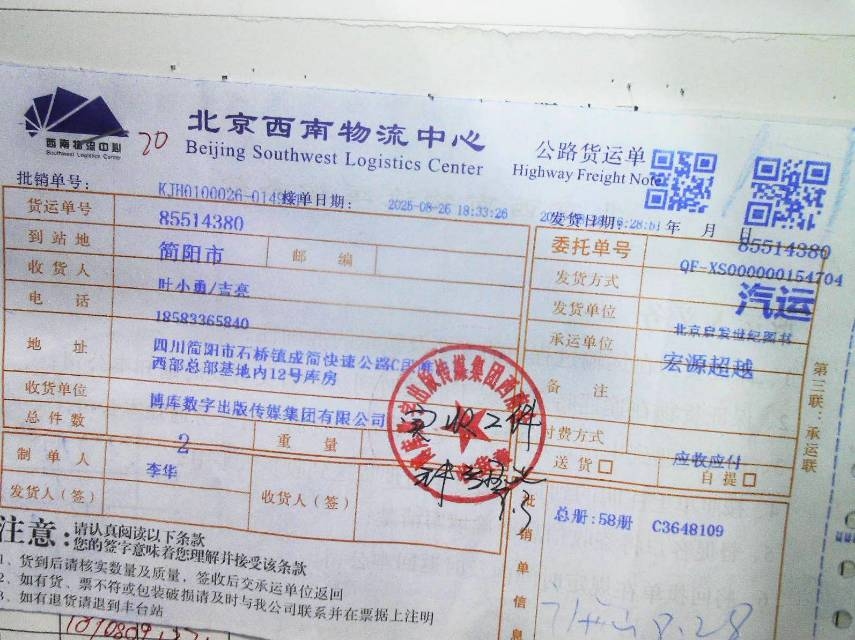 西南物流中心
Southwest Logistics Center
20
北京西南物流中心
Beijing Southwest Logistics Center
公路货运单
Highway Freight Note
批销单号:
接单日期:
2025-08-26 18:33:26
发货日期:
年 月 日
货运单号
85514380
85514380
到站地
简阳市
邮 编
委托单号
QF-XS000000154704
收货人
叶小勇/吉亮
发货方式
汽运
电 话
18583365840
发货单位
北京启发世纪图书
地 址
四川简阳市石桥镇成简快速公路C段
西部总部基地内12号库房
承运单位
宏源超越
备 注
收货单位
博库数字出版传媒集团有限公司
付费方式
应收应付
总件数
2
重 量
送 货
自 提
制单人
李华
发货人(签)
收货人(签)
实收2件
批销单信息
总册:58册 C3648109
8.28
第三联:承运联
注意:
请认真阅读以下条款
您的签字意味着您理解并接受该条款
1、货到后请核实数量及质量,签收后交承运单位返回
2、如有货、票不符或包装破损请及时与我公司联系并在票据上注明
3、如有退货请退到丰台站